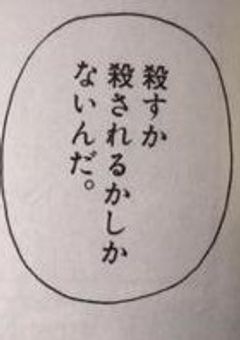 殺すか
殺されるかしか
ないんだ。